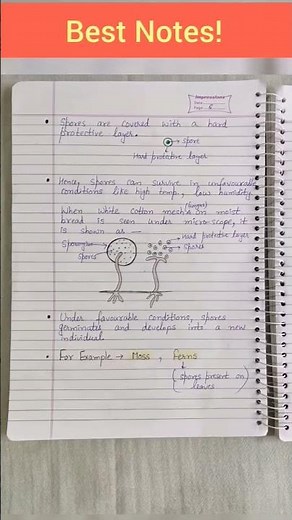 Best Notes!
Date
Page 8
• Spores are covered with a hard
protective layer.
→ Spore
Hard protetive layer
• Hence, spores can survive in unfavourable
conditions like high temp, low humidity.
(fungus)
When white cotton mesh on moist
bread is seen under microscope, it
is shown as —
Hard protetive layer
Spores
Spores
• Under favourable conditions, spores
germinates and develops into a new
individual.
• For Example → Moss, Ferns
(spores present on
leaves)